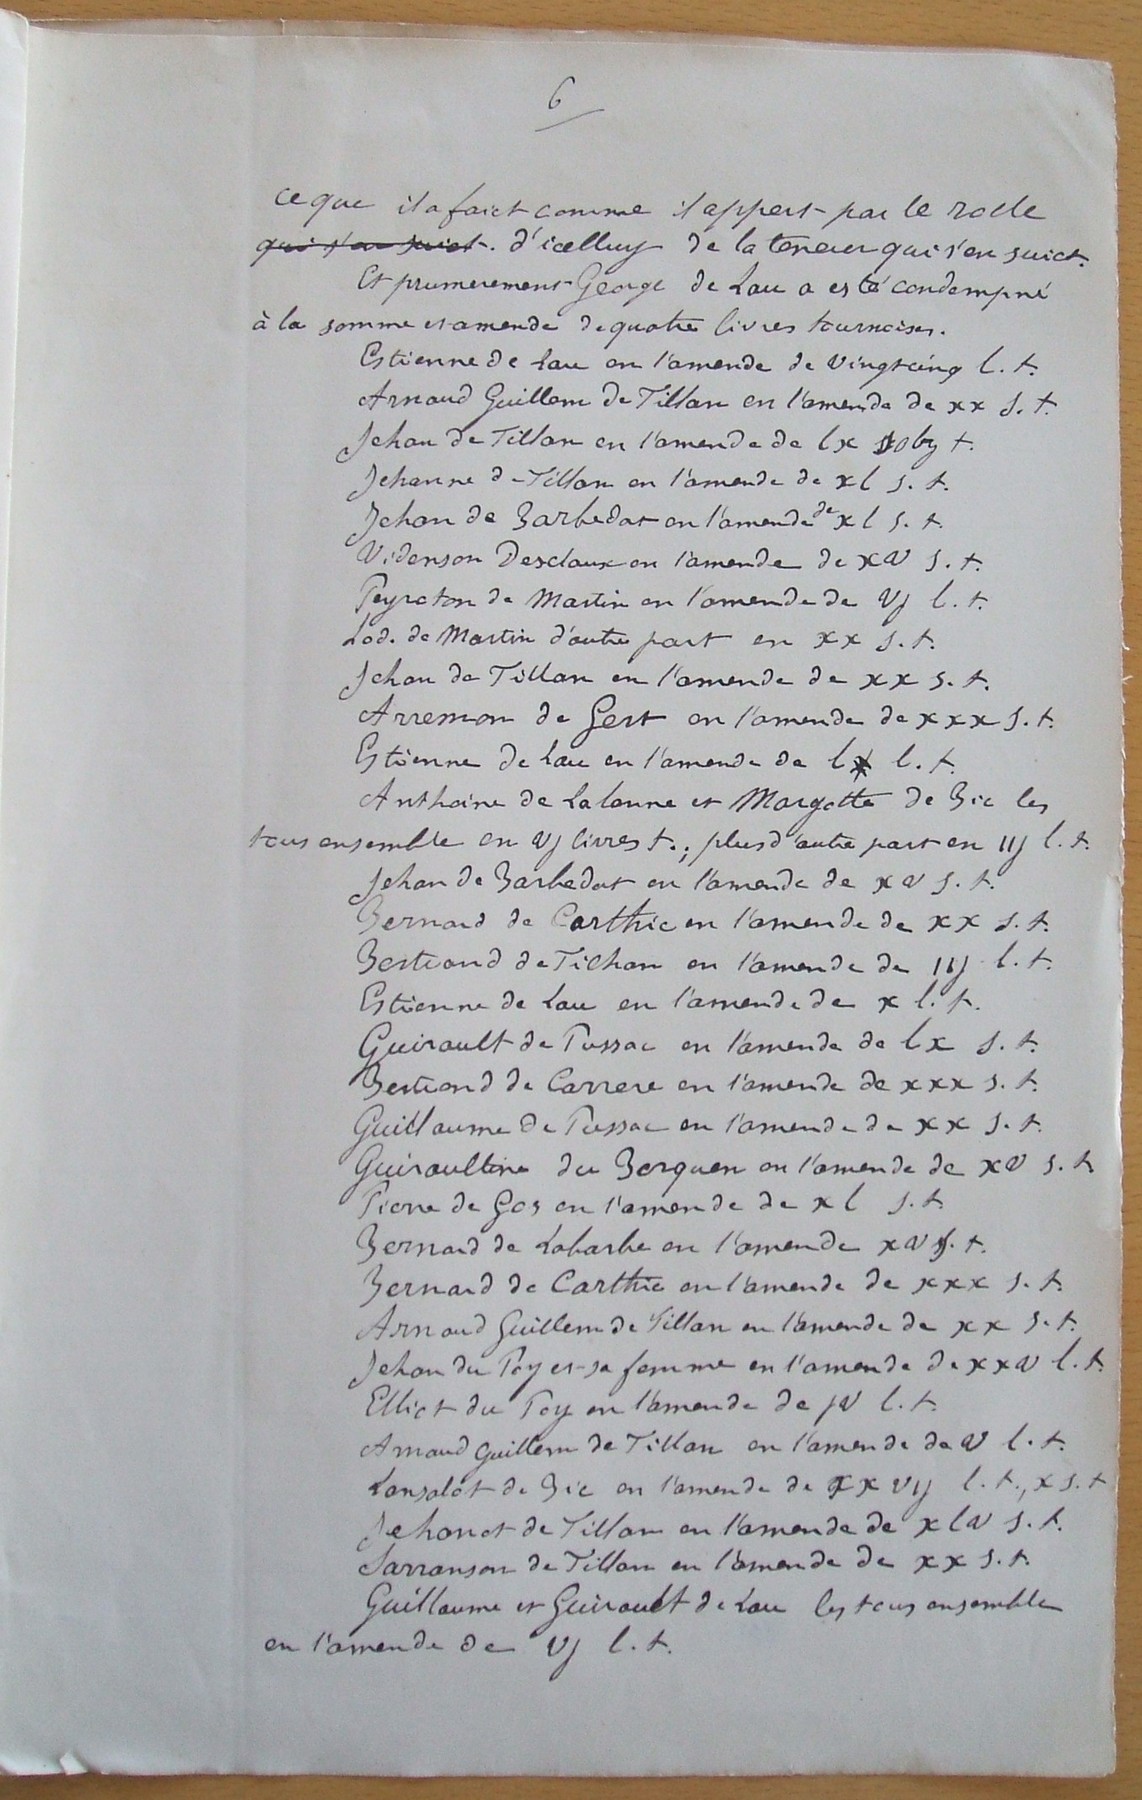 6
ce que il a faict comme il appert par le rolle
qui s'en suict. d'icelluy de la teneur qui s'en suict.
Et prumerement George de Lau a esté condempné
à la somme et amende de quatre livres tournoises.
Estienne de Lau en l'amende de vingtcinq l. t.
Arnaud Guillem de Tillan en l'amende de xx s. t.
Jehan de Tillan en l'amende de lx t.
Jehanne de Tillan en l'amende de xl s. t.
Jehan de Barbedat en l'amende de xl s. t.
Videnson Desclaux en l'amende de xv s. t.
Peyroton de Martin en l'amende de vj l. t.
Lod. de Martin d'autre part en xx s. t.
Jehan de Tillan en l'amende de xx s. t.
Arremon de Gert en l'amende de xxx s. t.
Estienne de Lau en l'amende de l l. t.
Anthoine de Lalanne et Margotte de Bic les
tous ensemble en vj livres t.; plus d'autre part en iij l. t.
Jehan de Barbedat en l'amende de xv s. t.
Bernard de Carthic en l'amende de xx s. t.
Bertrand de Tichan en l'amende de iij l. t.
Estienne de Lau en l'amende de x l. t.
Guirault de Pussac en l'amende de lx s. t.
Bertrand de Carrere en l'amende de xxx s. t.
Guillaume de Pussac en l'amende de xx s. t.
Guiraultine du Barquen en l'amende de xv s. t.
Pierre de Gos en l'amende de xl s. t.
Bernard de Labarbe en l'amende xv s. t.
Bernard de Carthic en l'amende de xxx s. t.
Arnaud Guillem de Tillan en l'amende de xx s. t.
Jehan du Poy et sa femme en l'amende de xxv l. t.
Elliot du Poy en l'amende de jv l. t.
Arnaud Guillem de Tillan en l'amende de v l. t.
Lansalot de Bic en l'amende de xxvij l. t., x s. t.
Jehanot de Tillan en l'amende de xlv s. t.
Sarranson de Tillan en l'amende de xx s. t.
Guillaume et Guirault de Lau les tous ensemble
en l'amende de vj l. t.